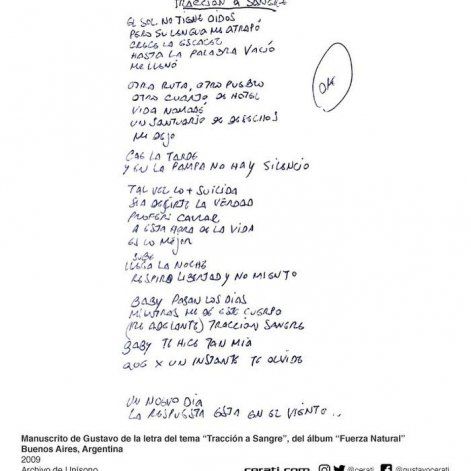 TRACCIÓN A SANGRE
EL SOL NO TIENE OIDOS
PERO SU LENGUA ME ATRAPÓ
CRECE LA ESCASEZ
HASTA LA PALABRA VACÍO
ME LLENÓ
OTRA RUTA, OTRO PUEBLO
OTRO CUARTO DE HOTEL
VIDA NOMADE
UN SANTUARIO DE DESECHOS
ME DEJO
OK
CAE LA TARDE
Y EN LA PAMPA NO HAY SILENCIO
TAL VEZ LO + SUICIDA
SEA DECIRTE LA VERDAD
PREFERÍ CALLAR
A ESTA HORA DE LA VIDA
ES LO MEJOR
SUBE
LLEGA LA NOCHE
RESPIRO LIBERTAD Y NO MIENTO
BABY PASAN LOS DÍAS
MIENTRAS ME DE ESTE CUERPO
(ME ADELANTE) TRACCION SANGRE
BABY TE HICE TAN MIA
QUE X UN INSTANTE TE OLVIDE
UN NUEVO DIA
LA RESPUESTA ESTA EN EL VIENTO..
Manuscrito de Gustavo de la letra del tema “Tracción a Sangre”, del álbum “Fuerza Natural”
Buenos Aires, Argentina
2009
Archivo de Unísono
cerati.com @cerati @gustavocerati